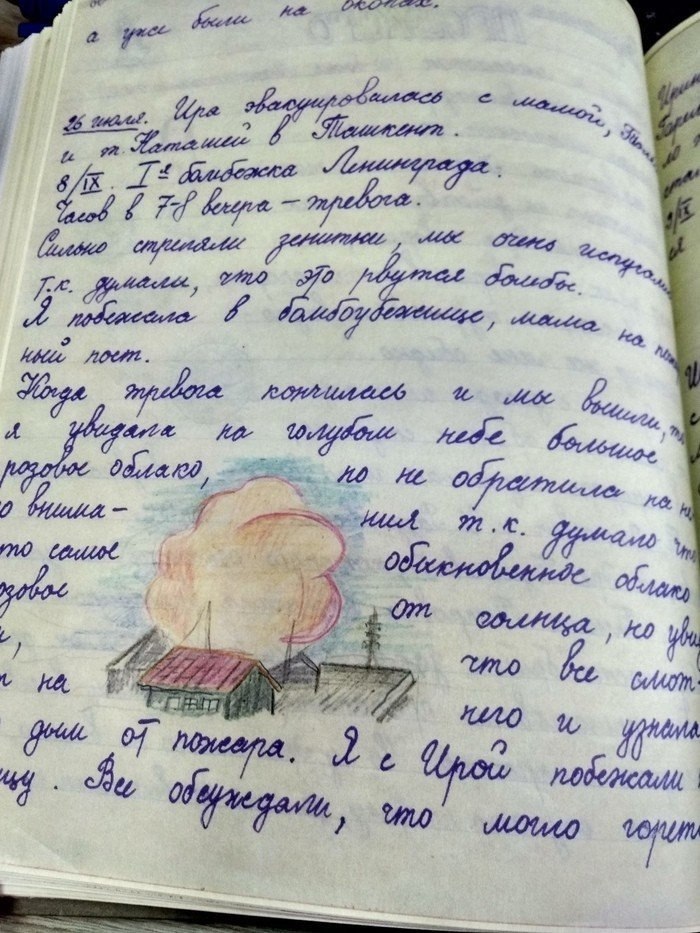 а уже были на окопах.
26 июля. Ира эвакуировалась с мамой,
и т. Наташей в Ташкент.
8/IX. Iя бомбежка Ленинграда.
Часов в 7-8 вечера – тревога.
Сильно стреляли зенитки, мы очень испугали
т.к. думали, что это рвутся бомбы.
Я побежала в бомбоубежище, мама на
ный пост.
Когда тревога кончилась и мы вышли, то
я увидала на голубом небе большое
розовое облако, но не обратила на не
о внима- ния т.к. думало что
то самое обыкновенное облако
розовое от солнца, но уви
что все смот-
т на него и узнала
дым от пожара. Я с Ирой побежали
ицу. Все обсуждали, что могло горет
Ирин
9/IX